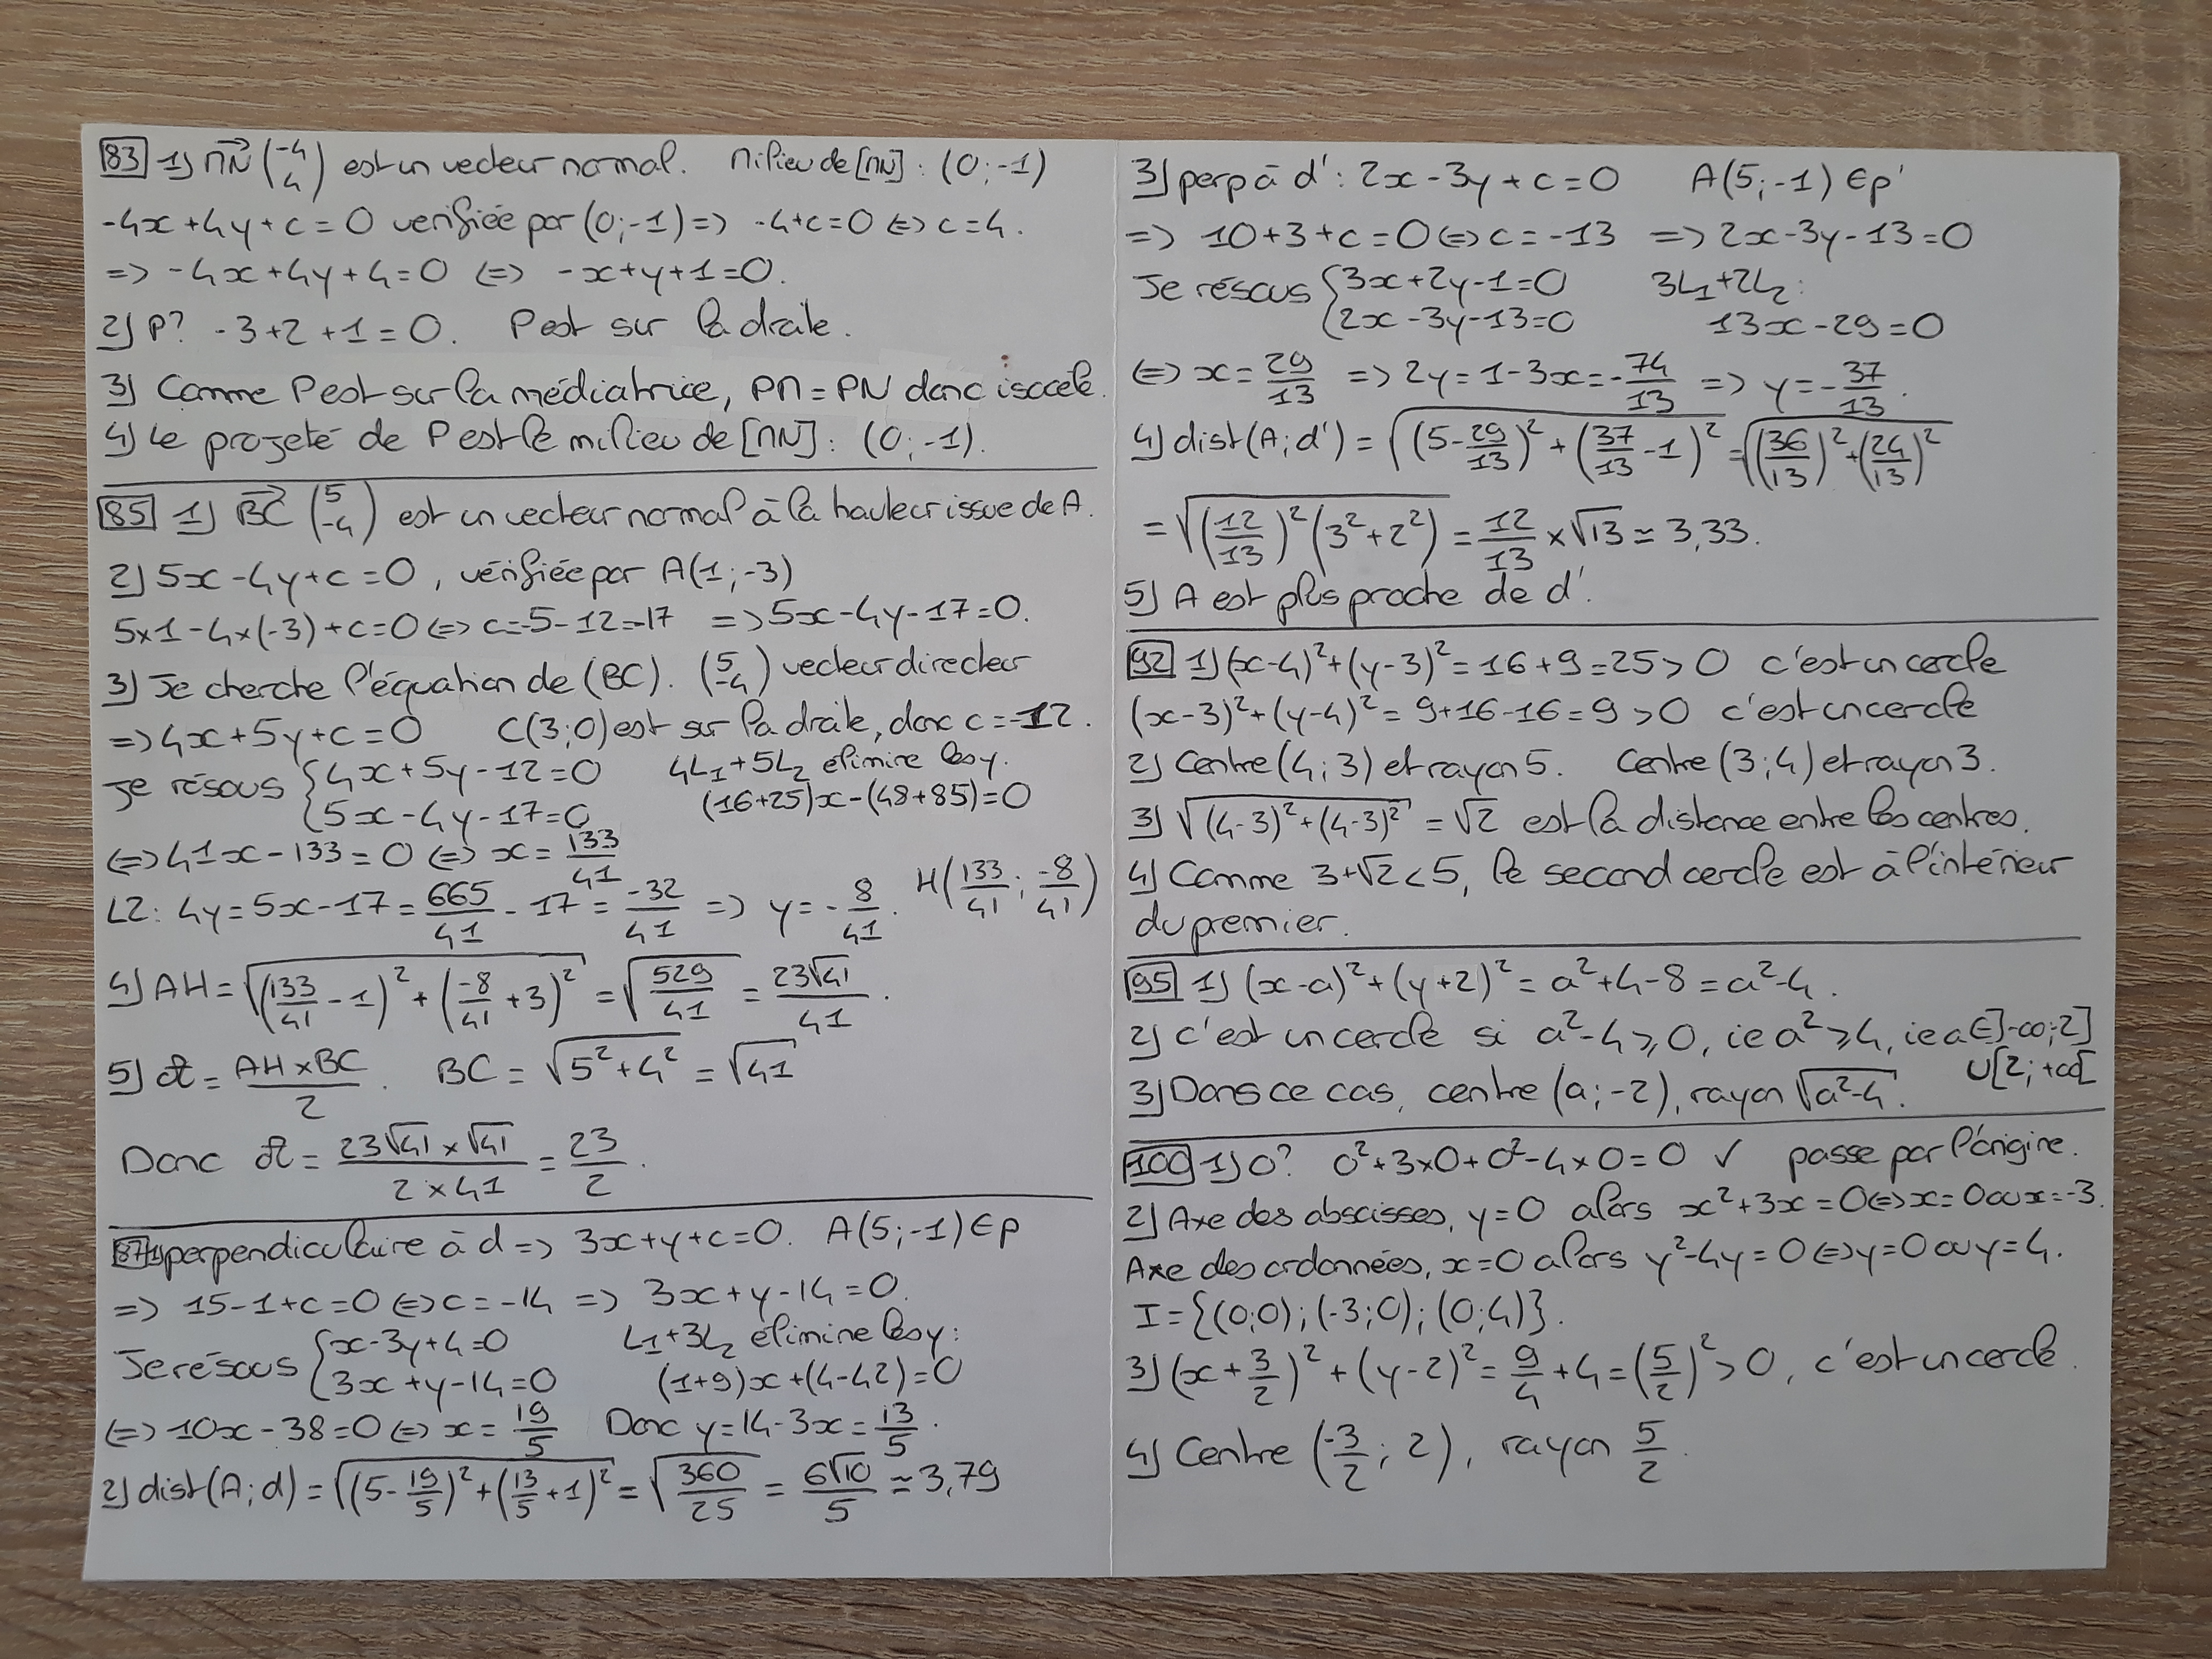 83 1) MN (-4 4) est un vecteur normal. Milieu de [MN] : (0;-1)
-4x+4y+c=0 verifiée par (0;-1) => -4+c=0 <=> c=4.
=> -4x+4y+4=0 <=> -x+y+1=0.
2) P? -3+2+1=0. P est sur la droite.
3) Comme P est sur la médiatrice, PM=PN donc isocèle.
4) Le projeté de P est le milieu de [MN] : (0;-1).
85 1) BC (5 -4) est un vecteur normal à la hauteur issue de A.
2) 5x-4y+c=0, vérifiée par A(1;-3)
5x1-4x(-3)+c=0 <=> c=-5-12=-17 => 5x-4y-17=0.
3) Je cherche l'équation de (BC). (5 -4) vecteur directeur
=> 4x+5y+c=0 C(3;0) est sur la droite, donc c=-12.
Je résous {4x+5y-12=0 4L1+5L2 élimine les y.
{5x-4y-17=0 (16+25)x-(48+85)=0
<=> 41x-133=0 <=> x=133/41
L2: 4y=5x-17=665/41-17=-32/41 => y=-8/41. H(133/41;-8/41)
4) AH=√((133/41-1)²+(-8/41+3)²)=√(529/41)=23√41/41.
5) A=AH×BC/2. BC=√(5²+4²)=√41
Donc A=23√41×√41/2×41=23/2.
87 1) perpendiculaire à d => 3x+y+c=0. A(5;-1)∈p
=> 15-1+c=0 <=> c=-14 => 3x+y-14=0.
Je résous {x-3y+4=0 L1+3L2 élimine les y:
{3x+y-14=0 (1+9)x+(4-42)=0
<=> 10x-38=0 <=> x=19/5 Donc y=14-3x=13/5.
2) dist(A;d)=√((5-19/5)²+(13/5+1)²)=√(360/25)=6√10/5≃3,79
3) perp à d': 2x-3y+c=0 A(5;-1)∈p'
=> 10+3+c=0 <=> c=-13 => 2x-3y-13=0
Je résous {3x+2y-1=0 3L1+2L2:
{2x-3y-13=0 13x-29=0
<=> x=29/13 => 2y=1-3x=-74/13 => y=-37/13.
4) dist(A;d')=√((5-29/13)²+(37/13-1)²)=√((36/13)²+(24/13)²)
=√((12/13)²(3²+2²))=12/13×√13≃3,33.
5) A est plus proche de d'.
92 1) (x-4)²+(y-3)²=16+9=25>0 c'est un cercle
(x-3)²+(y-4)²=9+16-16=9>0 c'est un cercle
2) Centre (4;3) et rayon 5. Centre (3;4) et rayon 3.
3) √((4-3)²+(4-3)²)=√2 est la distance entre les centres.
4) Comme 3+√2<5, le second cercle est à l'intérieur
du premier.
95 1) (x-a)²+(y+2)²=a²+4-8=a²-4.
2) C'est un cercle si a²-4⩾0, ie a²⩾4, ie a∈]-∞;2]
∪[2;+∞[
3) Dans ce cas, centre (a;-2), rayon √(a²-4).
100 1) O? 0²+3×0+0²-4×0=0 ✓ passe par l'origine.
2) Axe des abscisses, y=0 alors x²+3x=0 <=> x=0 ou x=-3.
Axe des ordonnées, x=0 alors y²-4y=0 <=> y=0 ou y=4.
I={(0;0);(-3;0);(0;4)}.
3) (x+3/2)²+(y-2)²=9/4+4=(5/2)²>0, c'est un cercle.
4) Centre (-3/2;2), rayon 5/2.